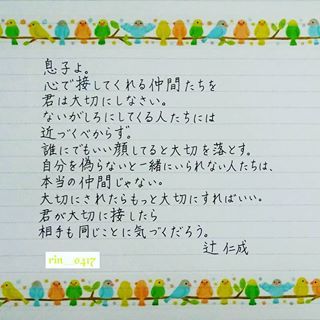 息子よ。
心で接してくれる仲間たちを
君は大切にしなさい。
ないがしろにしてくる人たちには
近づくべからず。
誰にでもいい顔してると大切を落とす。
自分を偽らないと一緒にいられない人たちは、
本当の仲間じゃない。
大切にされたらもっと大切にすればいい。
君が大切に接したら
相手も同じことに気づくだろう。
辻 仁成
rin__0417